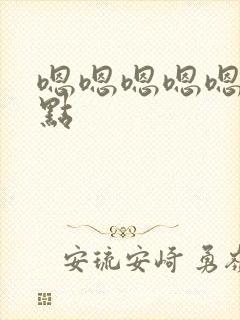 嗯嗯嗯嗯嗯
點
安琉安崎 勇